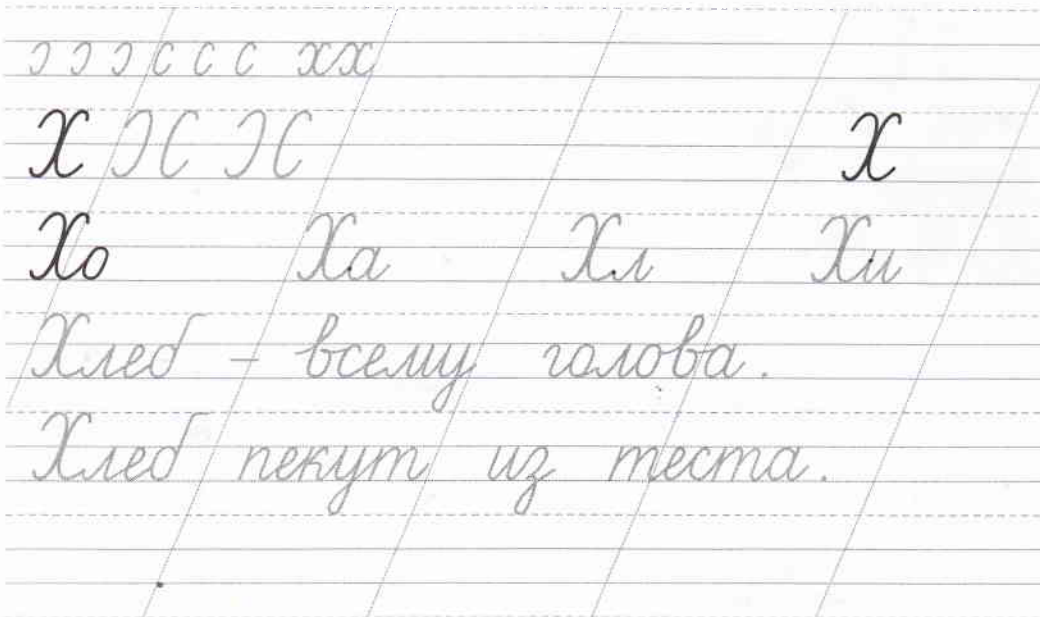 ɔ ɔ ɔ с с с хх
Х ɔс ɔс Х
Хо Ха Хл Хи
Хлеб - всему голова.
Хлеб пекут из теста.